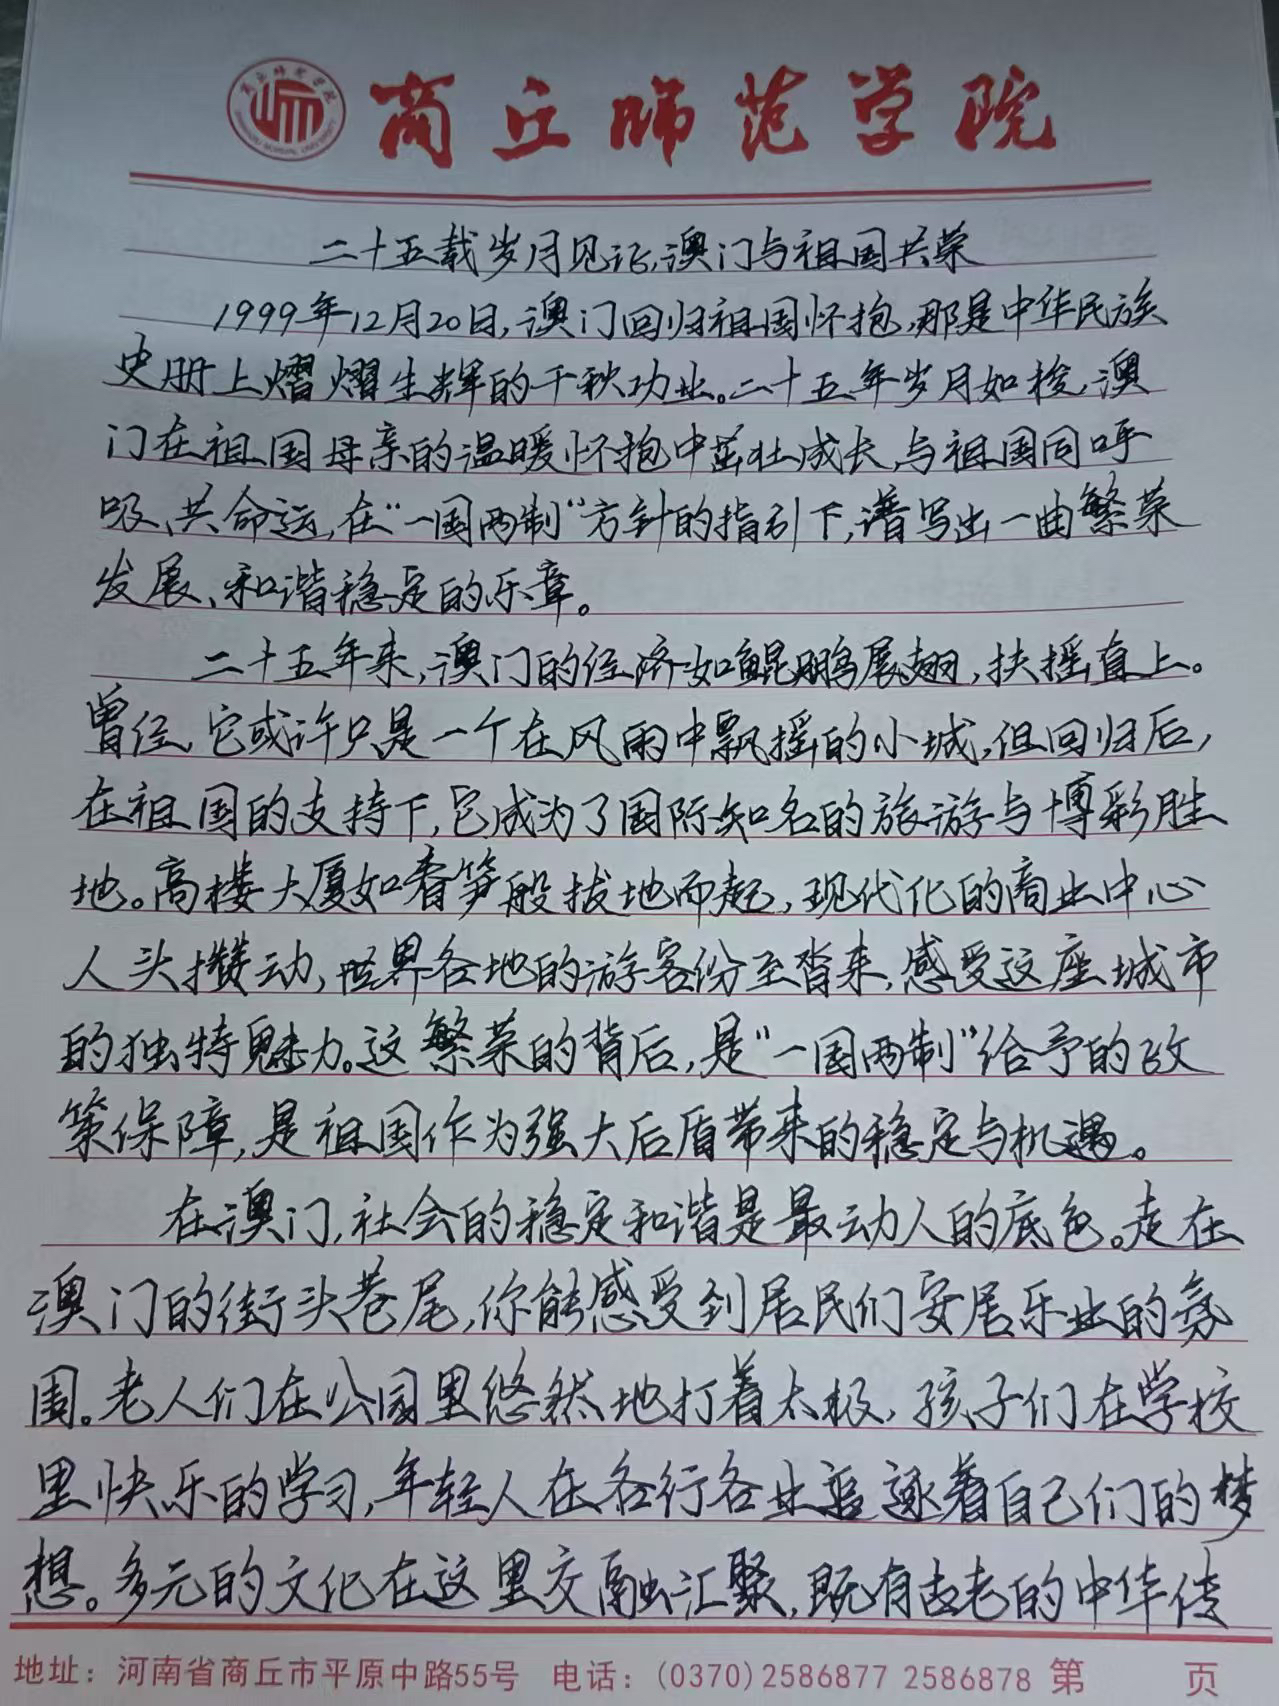 商丘师范学院
二十五载岁月见证,澳门与祖国共荣
1999年12月20日,澳门回归祖国怀抱,那是中华民族
史册上熠熠生辉的千秋功业。二十五年岁月如梭,澳
门在祖国母亲的温暖怀抱中茁壮成长,与祖国同呼
吸、共命运,在“一国两制”方针的指引下,谱写出一曲繁荣
发展、和谐稳定的乐章。
二十五年来,澳门的经济如鲲鹏展翅,扶摇直上。
曾经,它或许只是一个在风雨中飘摇的小城,但回归后,
在祖国的支持下,它成为了国际知名的旅游与博彩胜
地。高楼大厦如春笋般拔地而起,现代化的商业中心
人头攒动,世界各地的游客纷至沓来,感受这座城市
的独特魅力。这繁荣的背后,是“一国两制”给予的政
策保障,是祖国作为强大后盾带来的稳定与机遇。
在澳门,社会的稳定和谐是最动人的底色。走在
澳门的街头巷尾,你能感受到居民们安居乐业的氛
围。老人们在公园里悠然地打着太极,孩子们在学校
里快乐的学习,年轻人在各行各业追逐着自己们的梦
想。多元的文化在这里交融汇聚,既有古老的中华传
地址：河南省商丘市平原中路55号 电话：(0370)2586877 2586878 第 页